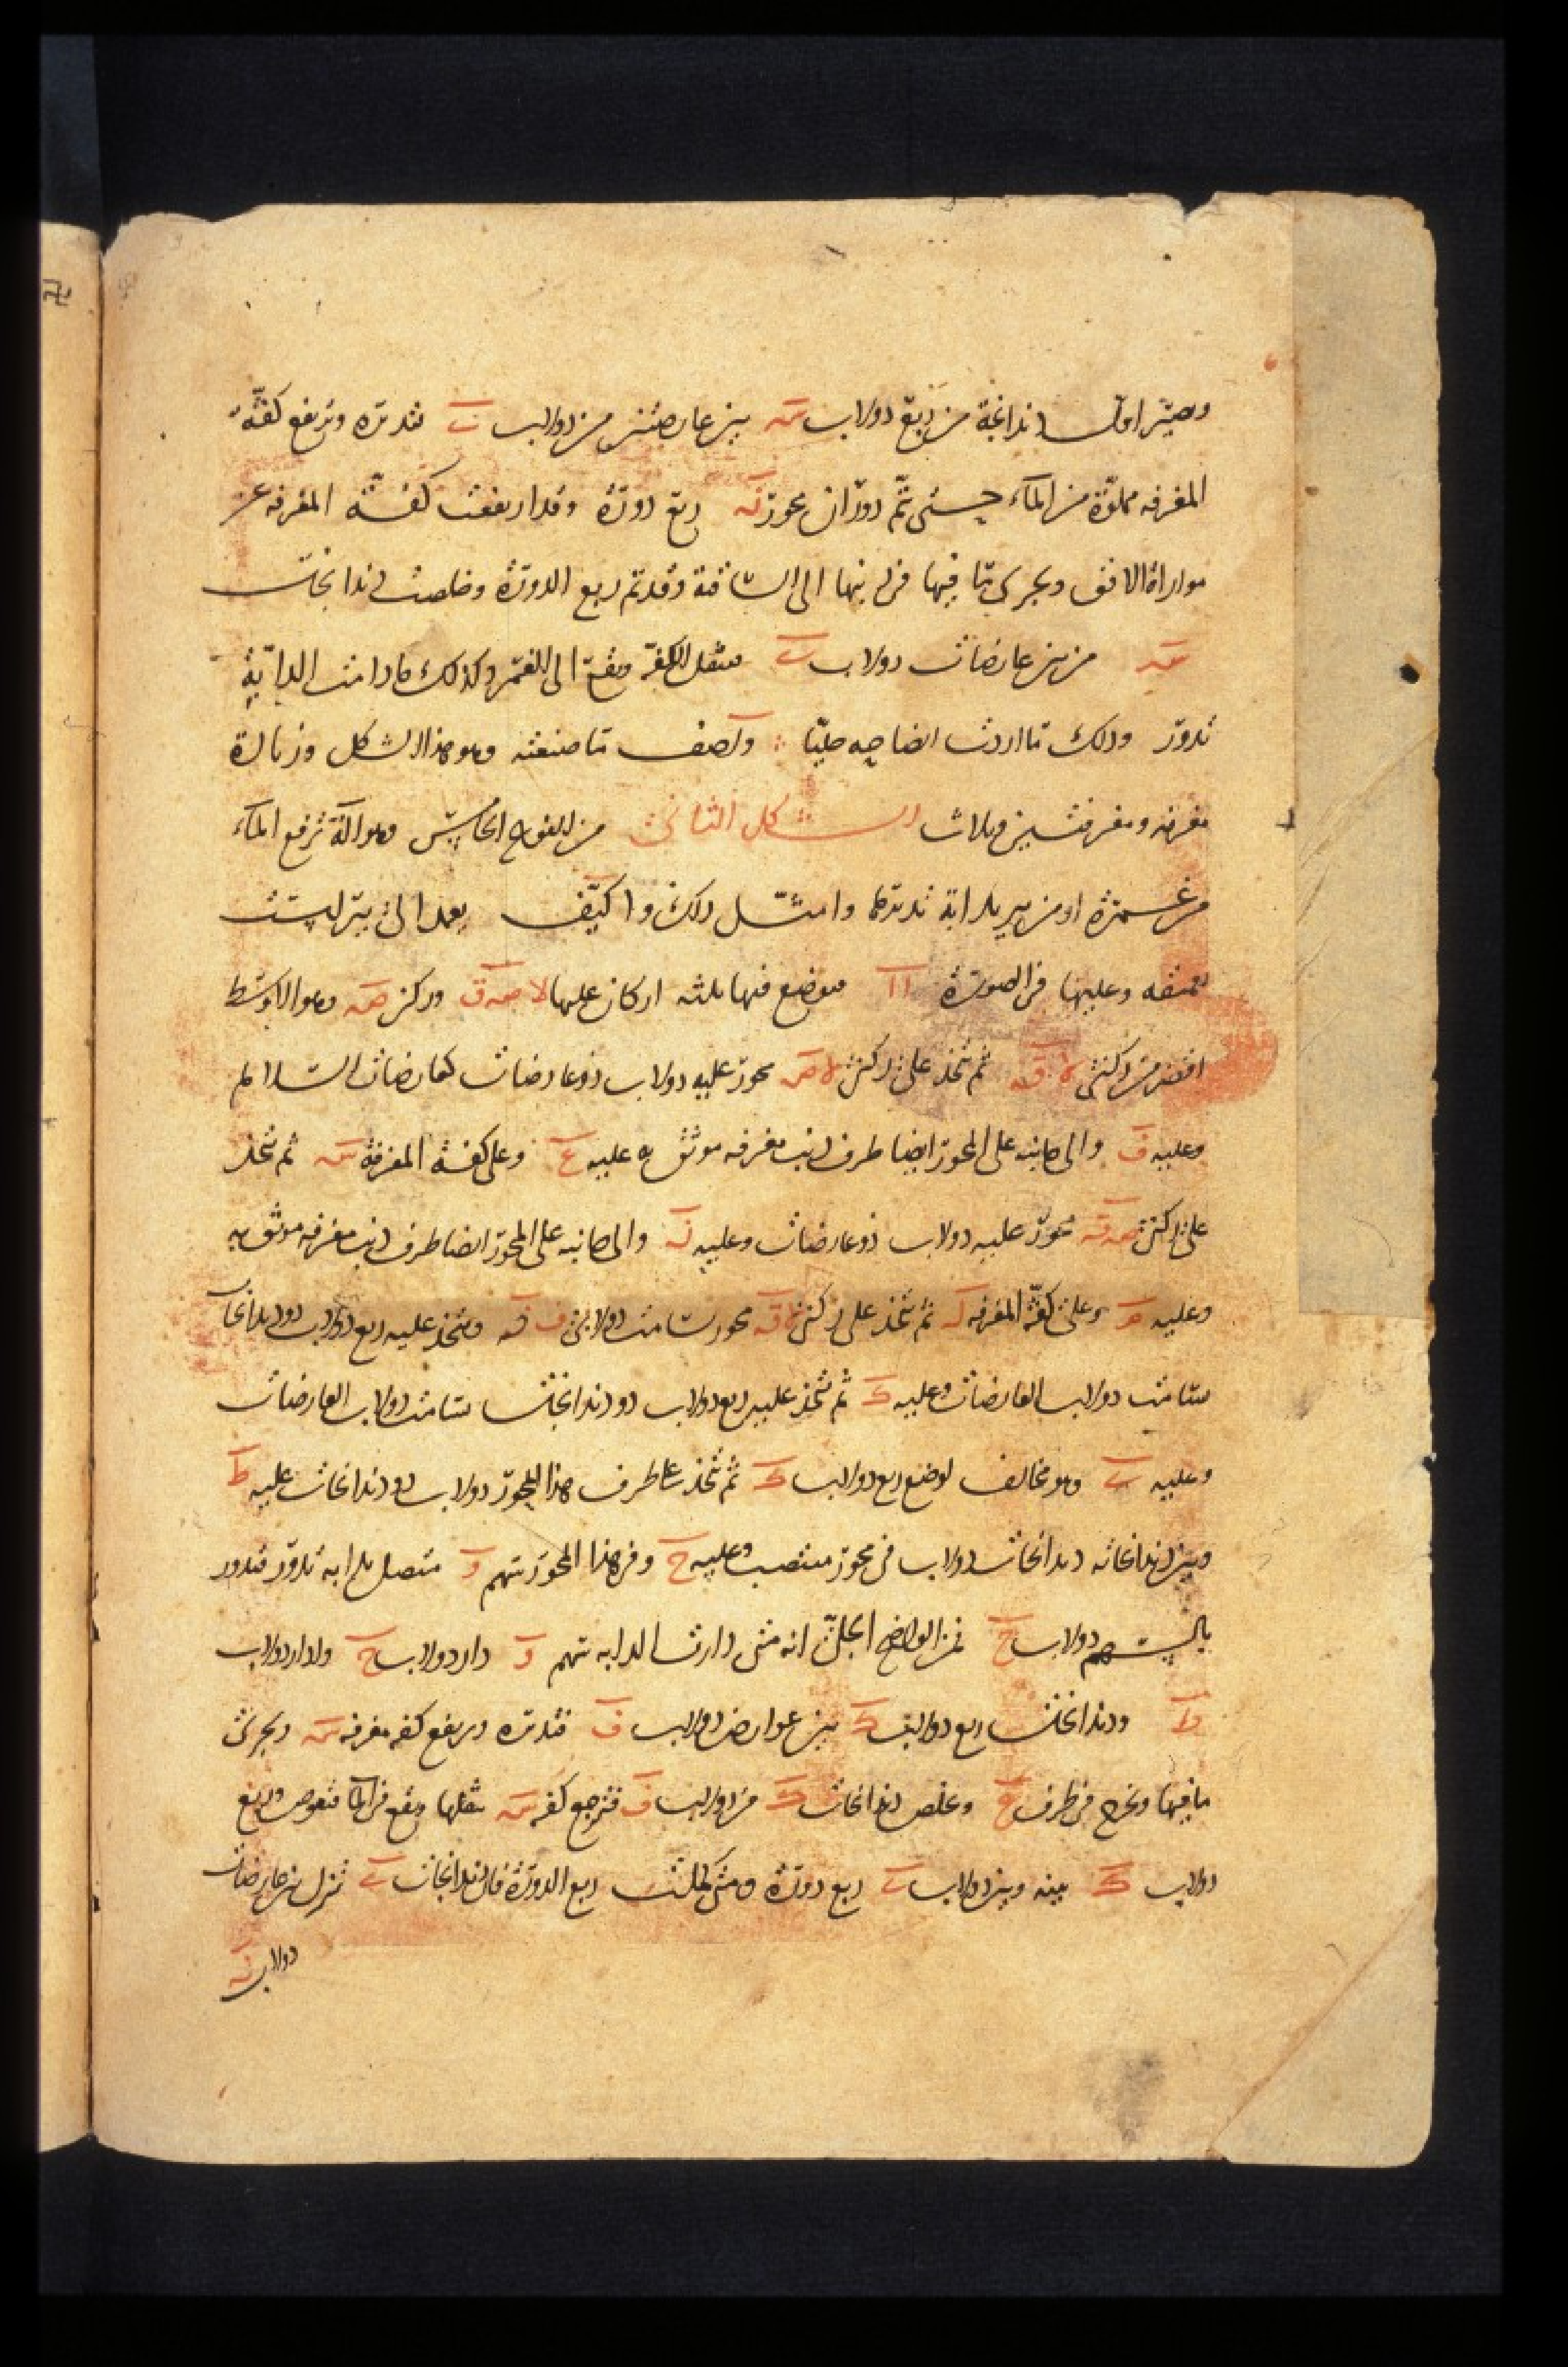 ويصير اول دندانجة من ربع دولاب س بين عارضتين من دولاب ب فتديره وترفع كفة
المغرفه مملوّة من الماء حتى تتم دوران محور ربع دورة وقد ارتفعت كفة المغرفه عن
موازاة الافق ويجري ما فيها في ذنبها الى الساقية وقد تم ربع الدورة وخلصت دندانجات
عه من بين عارضات دولاب ب فتثقل الكفة وتقع الى الغمر وكذلك ما دامت الدابة
تدور وذلك ما اردت ايضاحه جليّا واصف ما صنعته وهو هذا الشكل
مغرفه ومغرفتين وثلاث الشكل الثاني من النوع الخامس وهو آلة ترفع الماء
من غمرة او من بير بدابة تديرها وامثل ذلك واكيّف يعمد الى بير ليست
بعميقه وعليها في الصورة ا ا فيوضع فيها ثلثه اركان عليها لا صه ق وركن صه وهو الاوسط
اقصر من ركني لا ق ثم يتخذ على ركني لا صه محور عليه دولاب ذو عارضات كعارضات السلالم
وعليه ف والى جانبه على المحور ايضا طرف ذنب مغرفه موثق به عليه ع وعلى كفة المغرفة س ثم يتخذ
على ركني صه ق محور عليه دولاب ذو عارضات وعليه ن والى جانبه على المحور ايضا طرف ذنب مغرفه موثق به
وعليه م وعلى كفّة المغرفه ل ثم يتخذ على ركني لا ق محور يسامت دولابي ف ن ويتخذ عليه ربع دولاب ذو دندانجات
يسامت دولاب العارضات وعليه ك ثم يتخذ عليه ربع دولاب ذو دندانجات يسامت دولاب العارضات
وعليه ي وهو مخالف لوضع ربع دولاب ك ثم يتخذ على طرف هذا المحور دولاب ذو دندانجات عليه ط
وبين دندانجاته دندانجات دولاب في محور منتصب وعليه ح وفي هذا المحور سهم و متصل بدابه تدور فيدور
بالسهم دولاب ح فمن الواضح الجلي انه متى دارت الدابه بسهم و دار دولاب ح وادار دولاب
ط ودندانجات ربع دولاب ك بين عوارض دولاب ف فتديره ويرتفع كفه مغرفه س ويجري
ما فيها ويخرج من طرف ع وتخلص دندانجات ك من دولاب ف فترجع كفه س بثقلها وتقع في الماء فتغوص وربع
دولاب ك بينه وبين دولاب ي ربع دورة ومتى كملت ربع الدورة فان دندانجات ي تنزل بين عارضات
دولاب ن